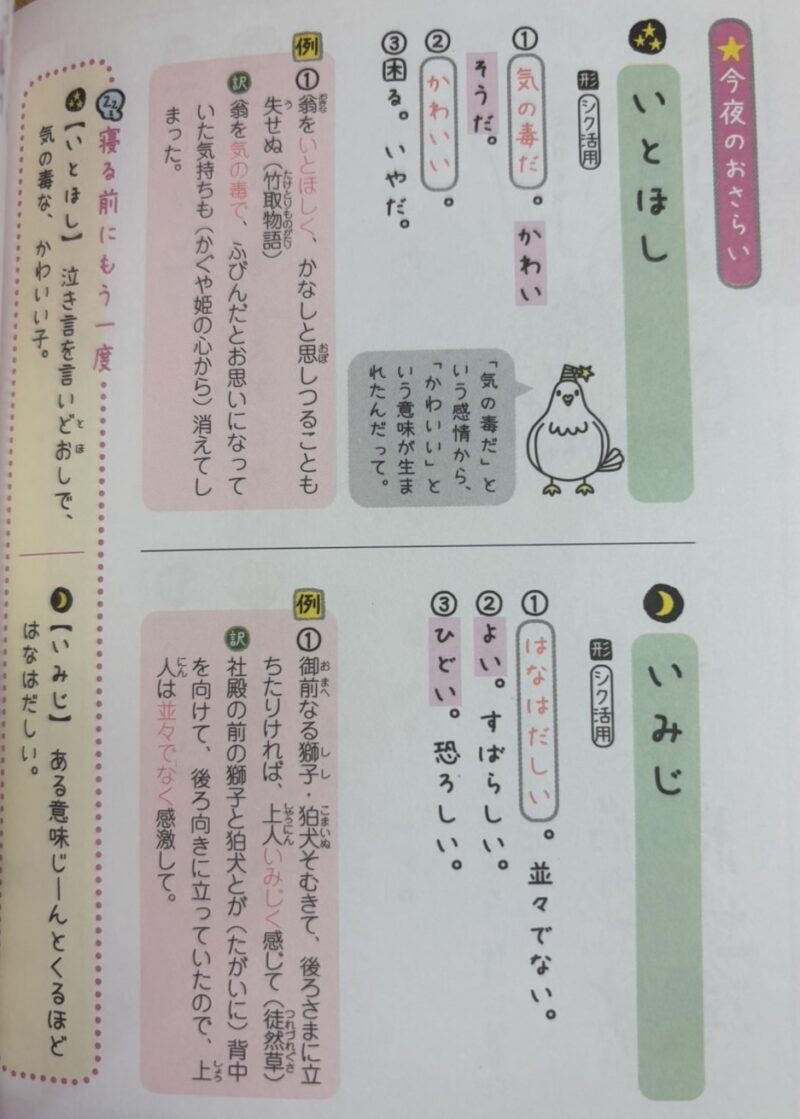 今夜のおさらい
いとほし
形 シク活用
① 気の毒だ。かわい
そうだ。
② かわいい。
③ 困る。いやだ。
「気の毒だ」と
いう感情から、
「かわいい」と
いう意味が生ま
れたんだって。
例 ① 翁をいとほしく、かなしと思しつることも
失せぬ(竹取物語)
訳 翁を気の毒で、ふびんだとお思いになって
いた気持ちも(かぐや姫の心から)消えてし
まった。
いみじ
形 シク活用
① はなはだしい。並々でない。
② よい。すばらしい。
③ ひどい。恐ろしい。
例 ① 御前なる獅子・狛犬そむきて、後ろさまに立
ちたりければ、上人いみじく感じて(徒然草)
訳 社殿の前の獅子と狛犬とが(たがいに)背中
を向けて、後ろ向きに立っていたので、上
人は並々でなく感激して。
寝る前にもう一度
【いとほし】泣き言を言いどおしで、
気の毒な、かわいい子。
【いみじ】ある意味じーんとくるほど
はなはだしい。